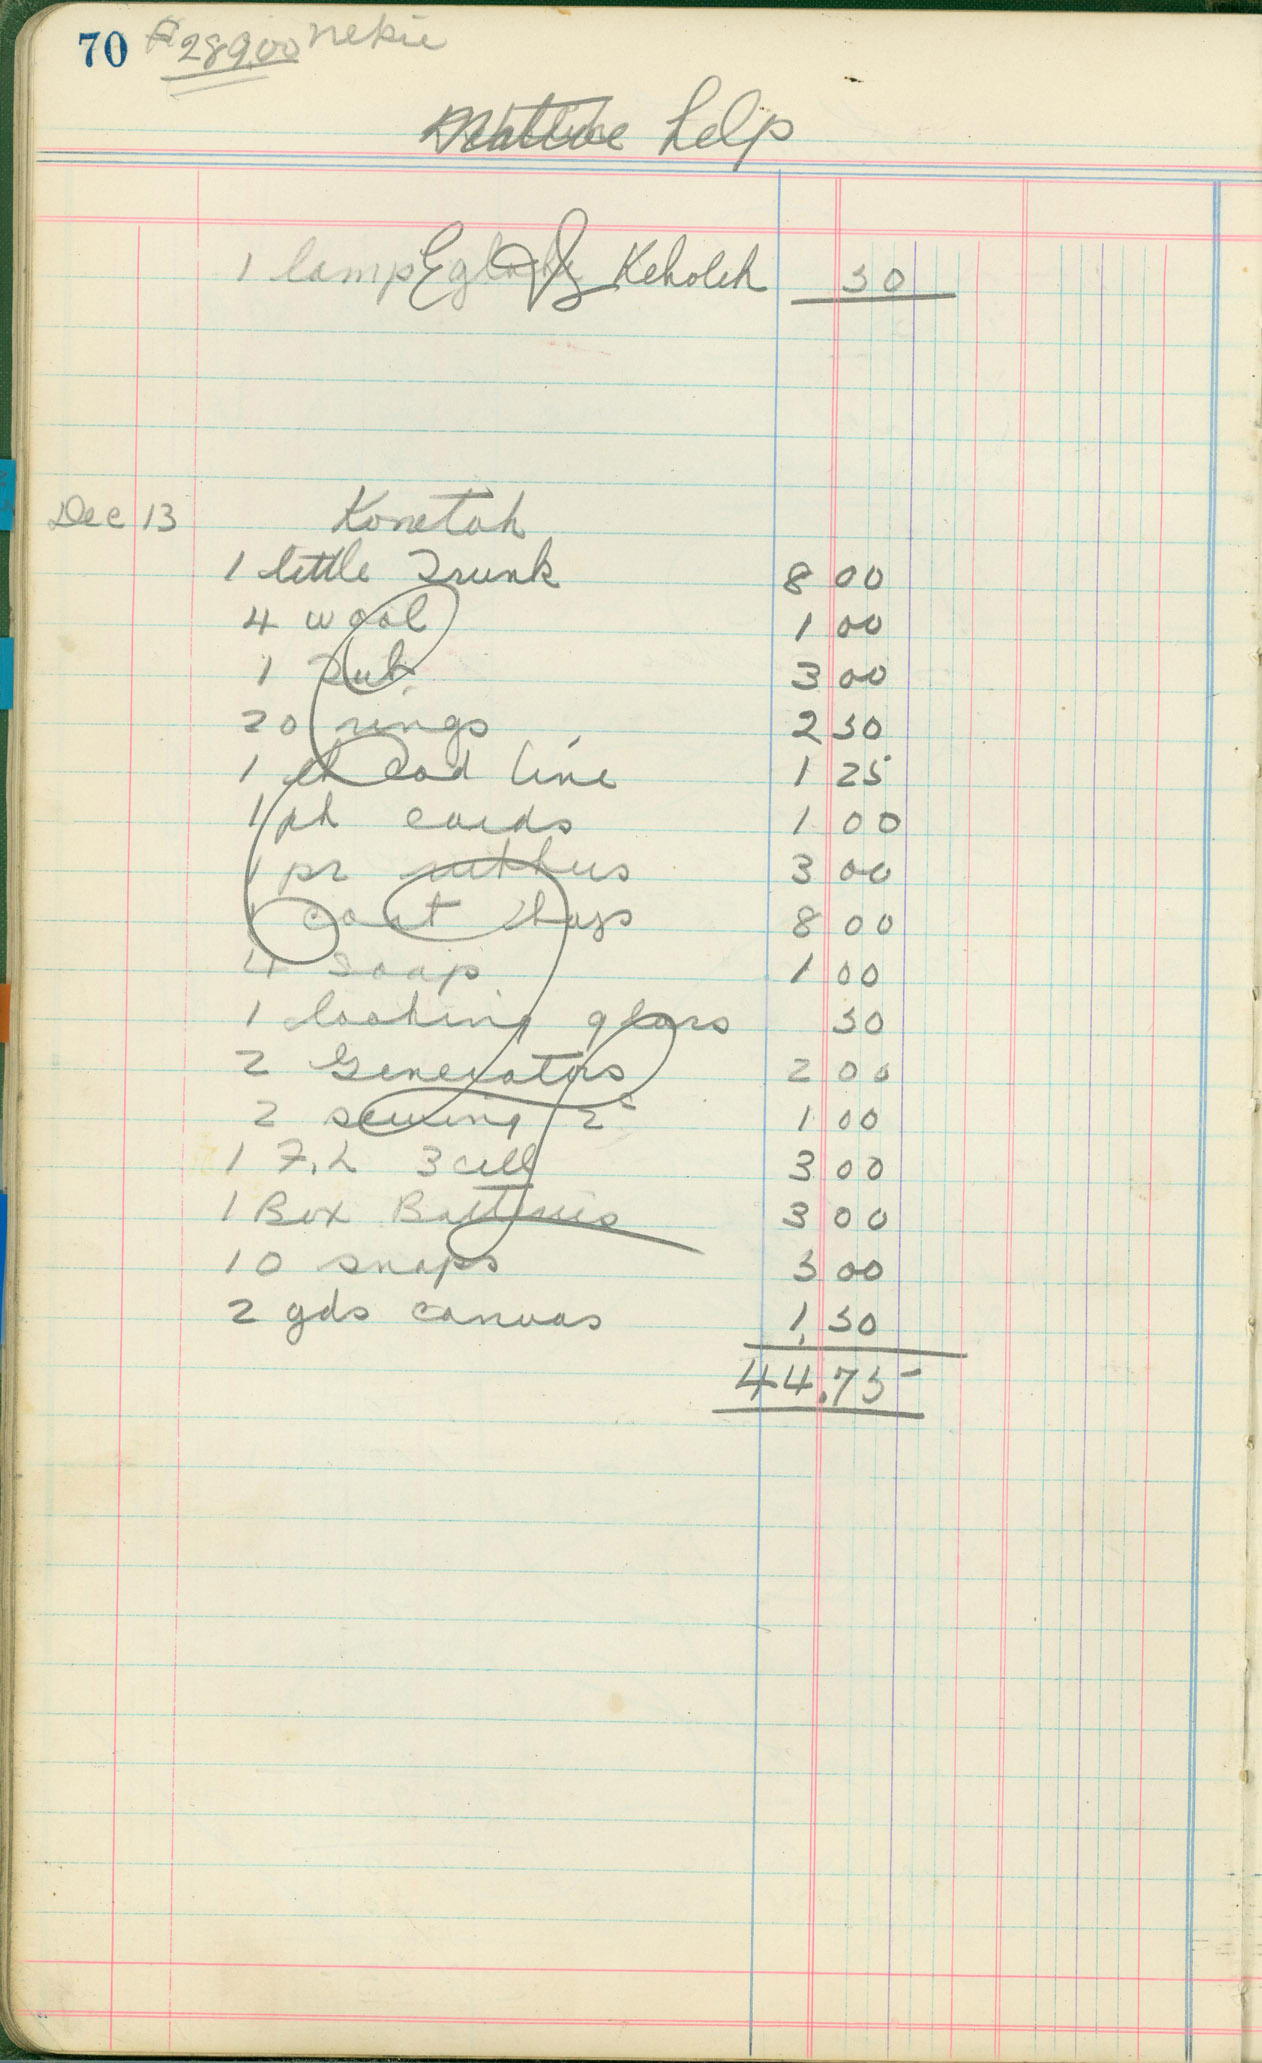 70 $289.00 nekie
Native help
1 lamp globe Keholeh 50
Dec 13 Konetah
1 little Trunk 8 00
4 wool 1 00
1 Tub 3 00
20 rings 2 50
1 cod line 1 25
1 pk cards 1 00
1 pr rubbers 3 00
1 coat 8 00
4 soap 1 00
1 looking glass 50
2 Generators 2 00
2 sewing 1 00
1 F.L 3 cell 3 00
1 Box Batteries 3 00
10 snaps 5 00
2 yds canvas 1.50
44.75